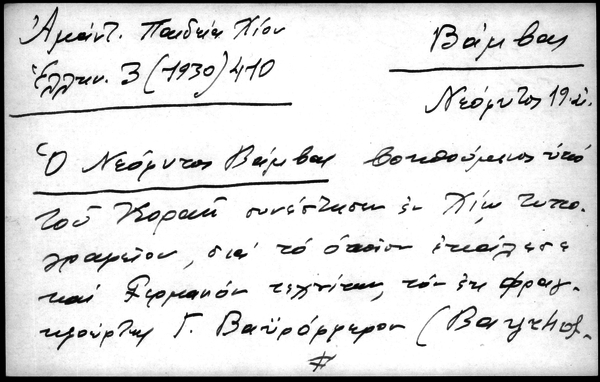 Ἀμάντ. Παιδεία Χίου
Βάμβας
Ἑλλην. 3 (1930) 410
Νεόφυτος 19 αἰ.
Ὁ Νεόφυτος Βάμβας βοηθούμενος ὑπό
τοῦ Κοραῆ συνέστησεν ἐν Χίῳ τυπο-
γραφεῖον, διά τό ὁποῖον ἐκάλεσε
καί Γερμανόν τεχνίτην, τόν ἐκ Φραγ-
κφούρτης Γ. Βαϋρόφφερον (Bayrhof-